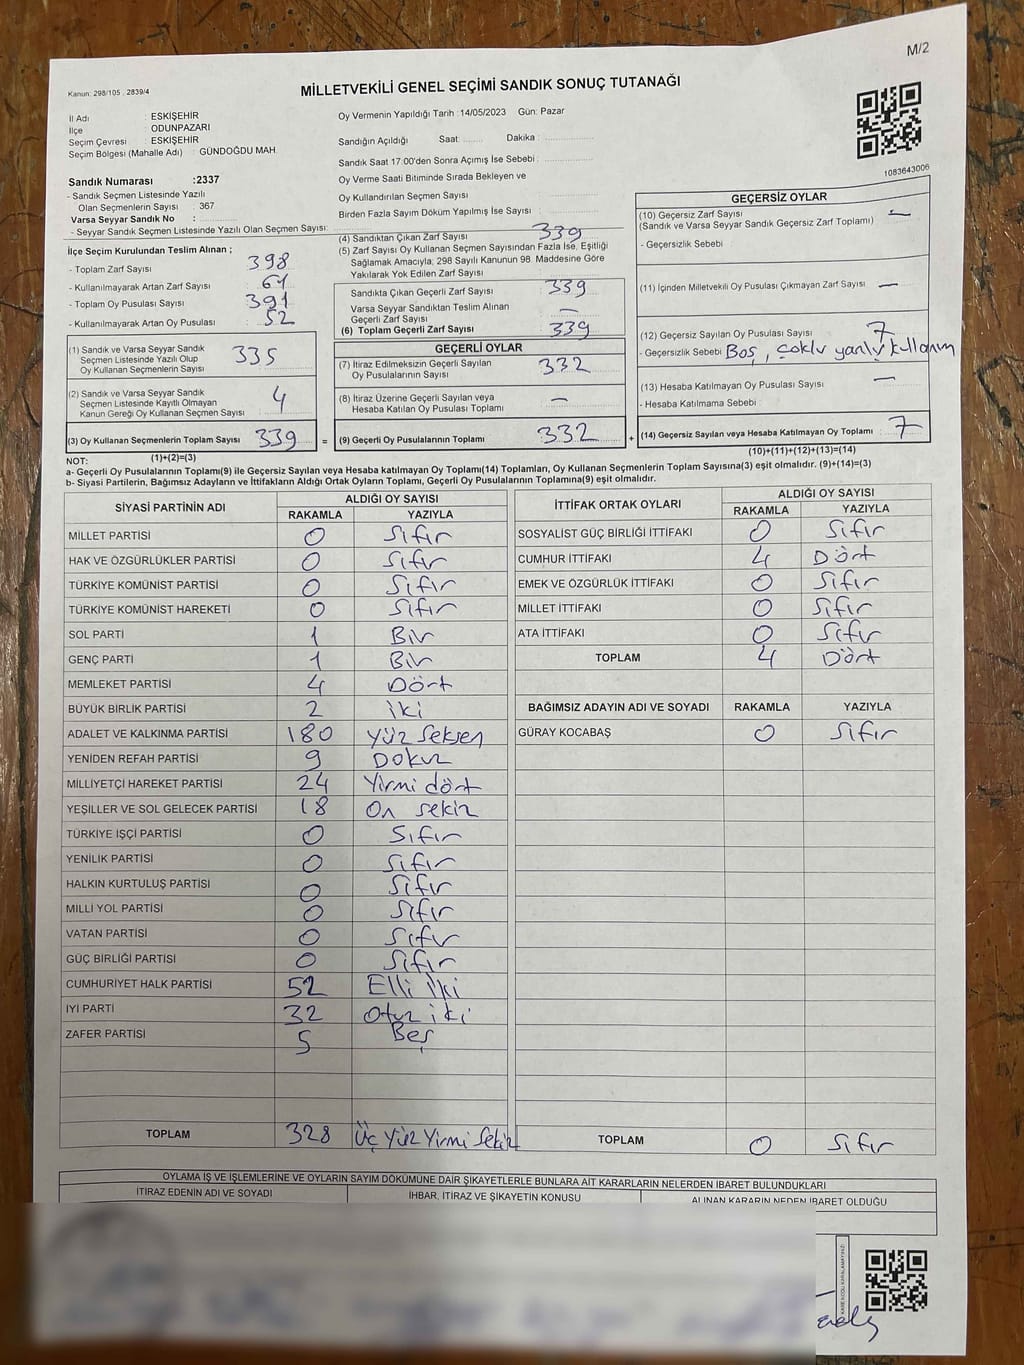 M/2
Kanun: 298/105 , 2839/4
MİLLETVEKİLİ GENEL SEÇİMİ SANDIK SONUÇ TUTANAĞI
İl Adı : ESKİŞEHİR
İlçe : ODUNPAZARI
Seçim Çevresi : ESKİŞEHİR
Seçim Bölgesi (Mahalle Adı) : GÜNDOĞDU MAH.
Sandık Numarası :2337
- Sandık Seçmen Listesinde Yazılı
Olan Seçmenlerin Sayısı : 367
Varsa Seyyar Sandık No :
- Seyyar Sandık Seçmen Listesinde Yazılı Olan Seçmen Sayısı:
Oy Vermenin Yapıldığı Tarih :14/05/2023 Gün: Pazar
Sandığın Açıldığı Saat: Dakika :
Sandık Saat 17:00'den Sonra Açımış İse Sebebi :
Oy Verme Saati Bitiminde Sırada Bekleyen ve
Oy Kullandırılan Seçmen Sayısı
Birden Fazla Sayım Döküm Yapılmış İse Sayısı :
1083643006
İlçe Seçim Kurulundan Teslim Alınan ;
- Toplam Zarf Sayısı : 398
- Kullanılmayarak Artan Zarf Sayısı :
- Toplam Oy Pusulası Sayısı : 391
- Kullanılmayarak Artan Oy Pusulası : 52
(1) Sandık ve Varsa Seyyar Sandık
Seçmen Listesinde Yazılı Olup
Oy Kullanan Seçmenlerin Sayısı : 335
(2) Sandık ve Varsa Seyyar Sandık
Seçmen Listesinde Kayıtlı Olmayan
Kanun Gereği Oy Kullanan Seçmen Sayısı : 4
(3) Oy Kullanan Seçmenlerin Toplam Sayısı : 339 =
(1)+(2)=(3)
(4) Sandıktan Çıkan Zarf Sayısı : 339
(5) Zarf Sayısı Oy Kullanan Seçmen Sayısından Fazla İse, Eşitliği
Sağlamak Amacıyla; 298 Sayılı Kanunun 98. Maddesine Göre
Yakılarak Yok Edilen Zarf Sayısı :
Sandıkta Çıkan Geçerli Zarf Sayısı : 339
Varsa Seyyar Sandıktan Teslim Alınan
Geçerli Zarf Sayısı : —
(6) Toplam Geçerli Zarf Sayısı : 339
GEÇERLİ OYLAR
(7) İtiraz Edilmeksizin Geçerli Sayılan
Oy Pusulalarının Sayısı : 332
(8) İtiraz Üzerine Geçerli Sayılan veya
Hesaba Katılan Oy Pusulası Toplamı : —
(9) Geçerli Oy Pusulalarının Toplamı : 332 +
GEÇERSİZ OYLAR
(10) Geçersiz Zarf Sayısı : —
(Sandık ve Varsa Seyyar Sandık Geçersiz Zarf Toplamı)
- Geçersizlik Sebebi :
(11) İçinden Milletvekili Oy Pusulası Çıkmayan Zarf Sayısı : —
(12) Geçersiz Sayılan Oy Pusulası Sayısı : 7
- Geçersizlik Sebebi : Boş, çoklu yanlış kullanım
(13) Hesaba Katılmayan Oy Pusulası Sayısı : —
- Hesaba Katılmama Sebebi :
(14) Geçersiz Sayılan veya Hesaba Katılmayan Oy Toplamı : 7
(10)+(11)+(12)+(13)=(14)
NOT:
a- Geçerli Oy Pusulalarının Toplamı(9) ile Geçersiz Sayılan veya Hesaba katılmayan Oy Toplamı(14) Toplamları, Oy Kullanan Seçmenlerin Toplam Sayısına(3) eşit olmalıdır. (9)+(14)=(3)
b- Siyasi Partilerin, Bağımsız Adayların ve İttifakların Aldığı Ortak Oyların Toplamı, Geçerli Oy Pusulalarının Toplamına(9) eşit olmalıdır.
SİYASİ PARTİNİN ADI ALDIĞI OY SAYISI
RAKAMLA YAZIYLA
MİLLET PARTİSİ 0 Sıfır
HAK VE ÖZGÜRLÜKLER PARTİSİ 0 Sıfır
TÜRKİYE KOMÜNİST PARTİSİ 0 Sıfır
TÜRKİYE KOMÜNİST HAREKETİ 0 Sıfır
SOL PARTİ 1 Bir
GENÇ PARTİ 1 Bir
MEMLEKET PARTİSİ 4 Dört
BÜYÜK BİRLİK PARTİSİ 2 iki
ADALET VE KALKINMA PARTİSİ 180 Yüz Seksen
YENİDEN REFAH PARTİSİ 9 Dokuz
MİLLİYETÇİ HAREKET PARTİSİ 24 Yirmi dört
YEŞİLLER VE SOL GELECEK PARTİSİ 18 On sekiz
TÜRKİYE İŞÇİ PARTİSİ 0 Sıfır
YENİLİK PARTİSİ 0 Sıfır
HALKIN KURTULUŞ PARTİSİ 0 Sıfır
MİLLİ YOL PARTİSİ 0 Sıfır
VATAN PARTİSİ 0 Sıfır
GÜÇ BİRLİĞİ PARTİSİ 0 Sıfır
CUMHURİYET HALK PARTİSİ 52 Elli iki
İYİ PARTİ 32 Otuz iki
ZAFER PARTİSİ 5 Beş
TOPLAM 328 Üç Yüz Yirmi Sekiz
İTTİFAK ORTAK OYLARI ALDIĞI OY SAYISI
RAKAMLA YAZIYLA
SOSYALİST GÜÇ BİRLİĞİ İTTİFAKI 0 Sıfır
CUMHUR İTTİFAKI 4 Dört
EMEK VE ÖZGÜRLÜK İTTİFAKI 0 Sıfır
MİLLET İTTİFAKI 0 Sıfır
ATA İTTİFAKI 0 Sıfır
TOPLAM 4 Dört
BAĞIMSIZ ADAYIN ADI VE SOYADI RAKAMLA YAZIYLA
GÜRAY KOCABAŞ 0 Sıfır
TOPLAM 0 Sıfır
OYLAMA İŞ VE İŞLEMLERİNE VE OYLARIN SAYIM DÖKÜMÜNE DAİR ŞİKAYETLERLE BUNLARA AİT KARARLARIN NELERDEN İBARET BULUNDUKLARI
İTİRAZ EDENİN ADI VE SOYADI İHBAR, İTİRAZ VE ŞİKAYETİN KONUSU ALINAN KARARIN NEDEN İBARET OLDUĞU